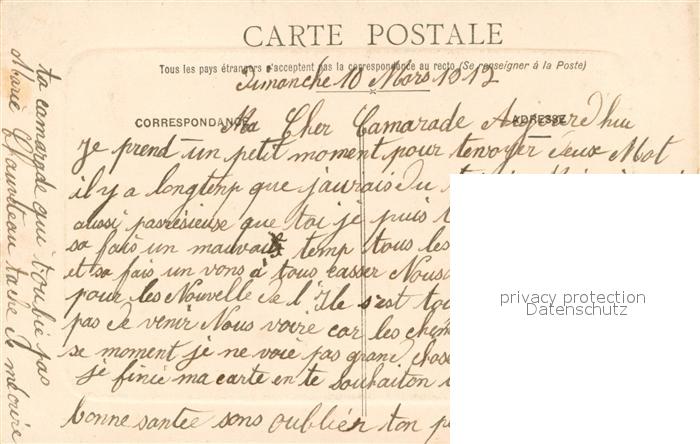 CARTE POSTALE
Tous les pays étrangers n'acceptent pas la correspondance au recto (Se renseigner à la Poste)
Dimanche 10 Mars 1912
CORRESPONDANCE
ADRESSE
Ma Cher Camarade Aujourd'hui
Je prend un petit moment pour tenvoyer deux Mot
il y a longtenp que j'aurais du
aussi paresieuse que toi je puis
sa fais un mauvais temp tous les
et sa fais un vons à tous casser Nous
pour les Nouvelle de l'Ile s'est
pas de venir Nous voire car les
se moment je ne voie pas grand chose
je finie ma carte en te souhaiton
bonne santée sans oublier ton
ta camarade qui t'oublie pas
Marie tache de mécrire
privacy protection
Datenschutz